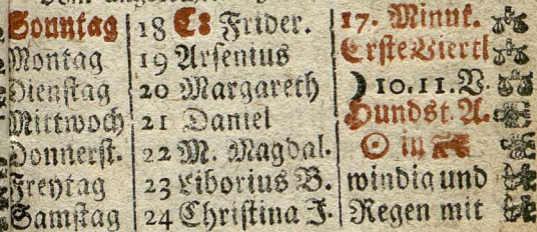 Sonntag 18 C: Frider. 17. Minut.
Montag 19 Arsenius Erste Viertl
Dienstag 20 Margareth ☽ 10.11.V.
Mittwoch 21 Daniel Hundst. A.
Donnerst. 22 M. Magdal. ☉ in
Freytag 23 Liborius B. windig und
Samstag 24 Christina J. Regen mit